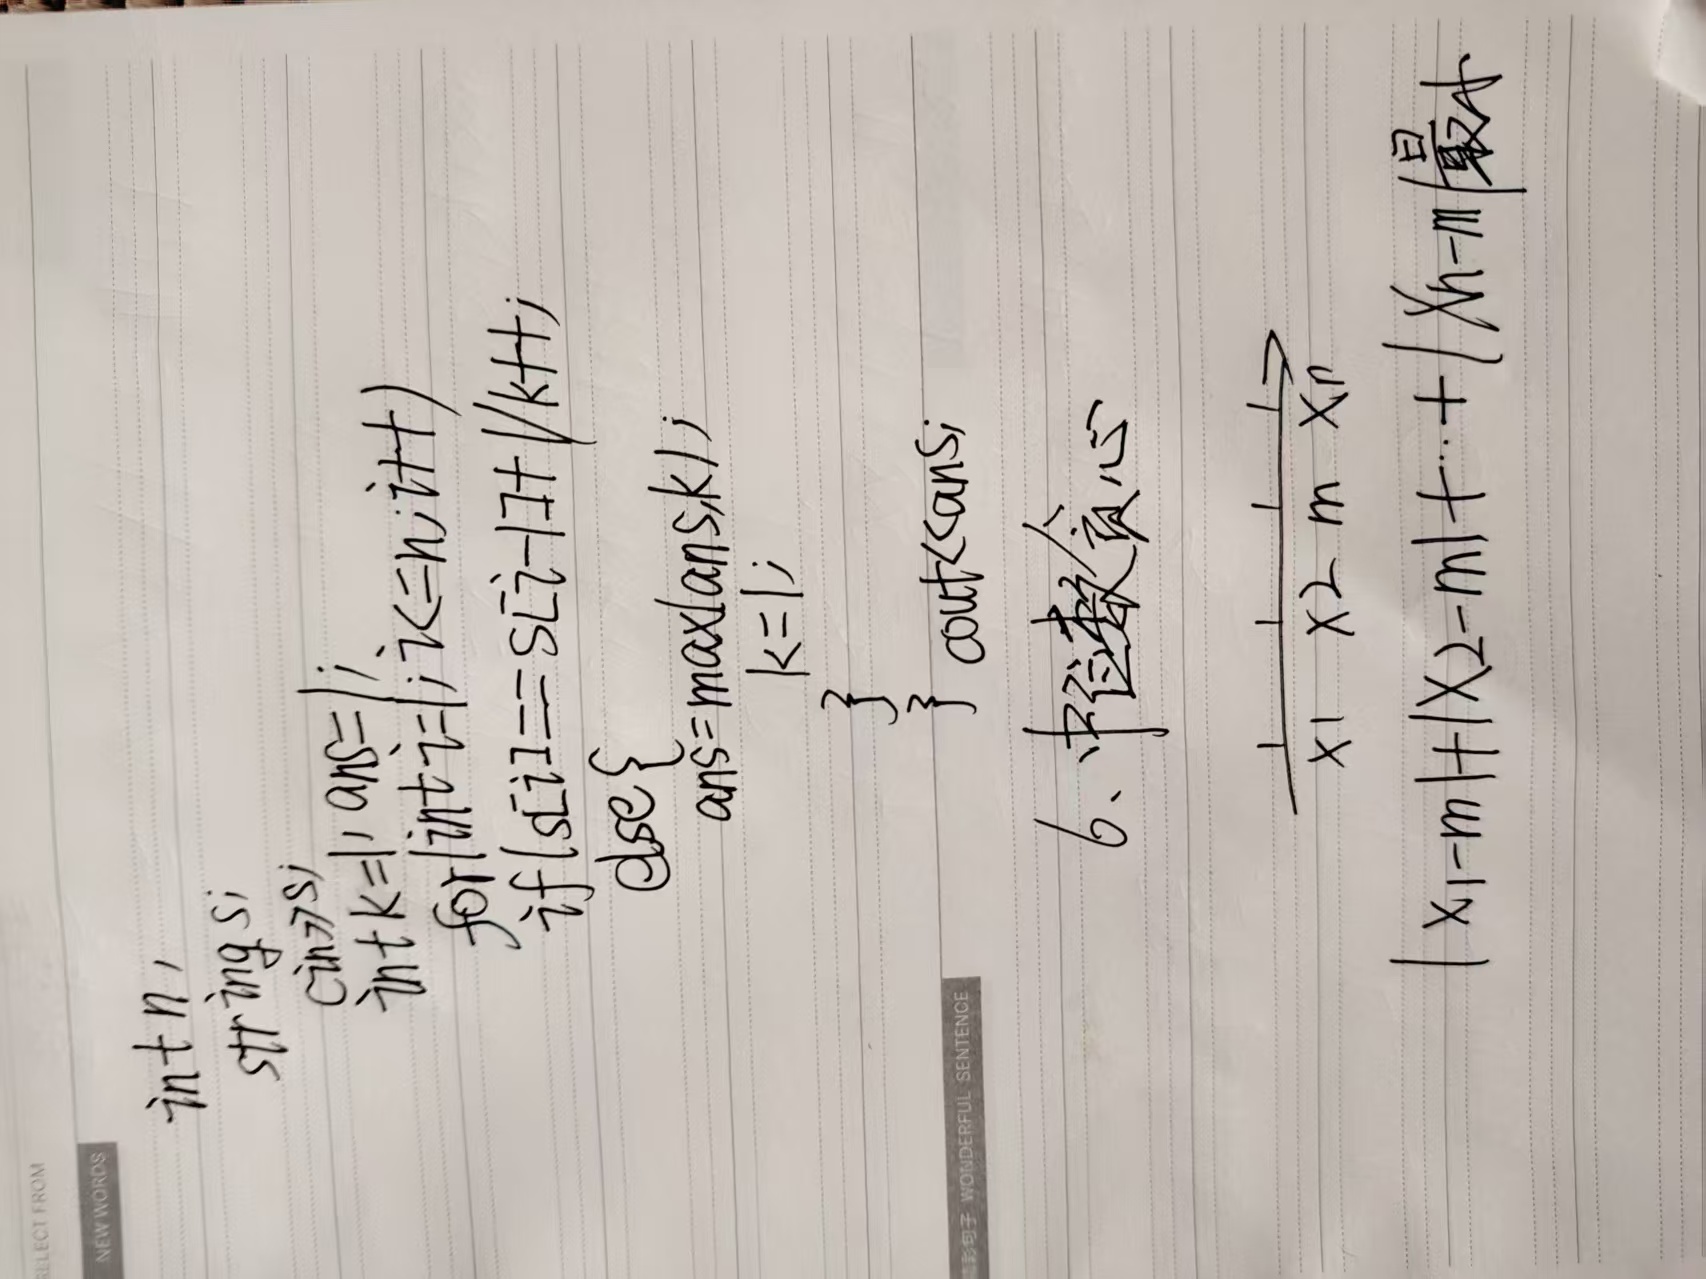 RELECT FROM
NEW WORDS
int n,
string s;
cin>>s;
int k=1, ans=1;
for(int i=1; i<=n; i++)
if(s[i]==s[i-1]+1)k++;
else{
ans=max(ans,k);
k=1;
}
}
cout<<ans;
句子 WONDERFUL SENTENCE
6、中位数贪心
x1 x2 m xn
|x1-m|+|x2-m|+...+|xn-m|最小